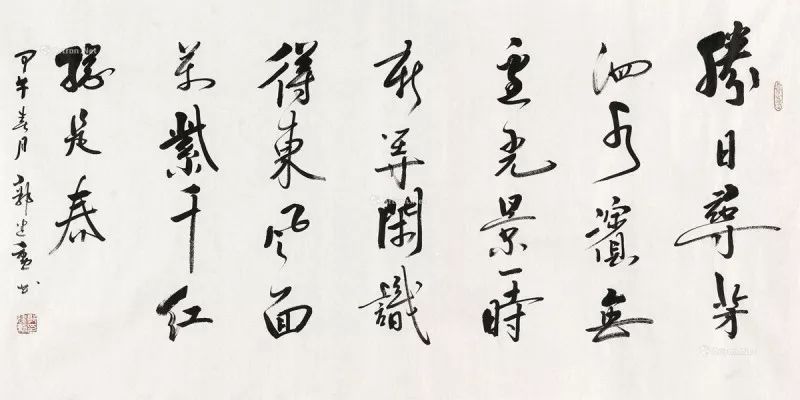 勝日尋芳
泗水濱無
邊光景一時
新等閑識
得東風面
萬紫千紅
總是春
甲午春月 郭建